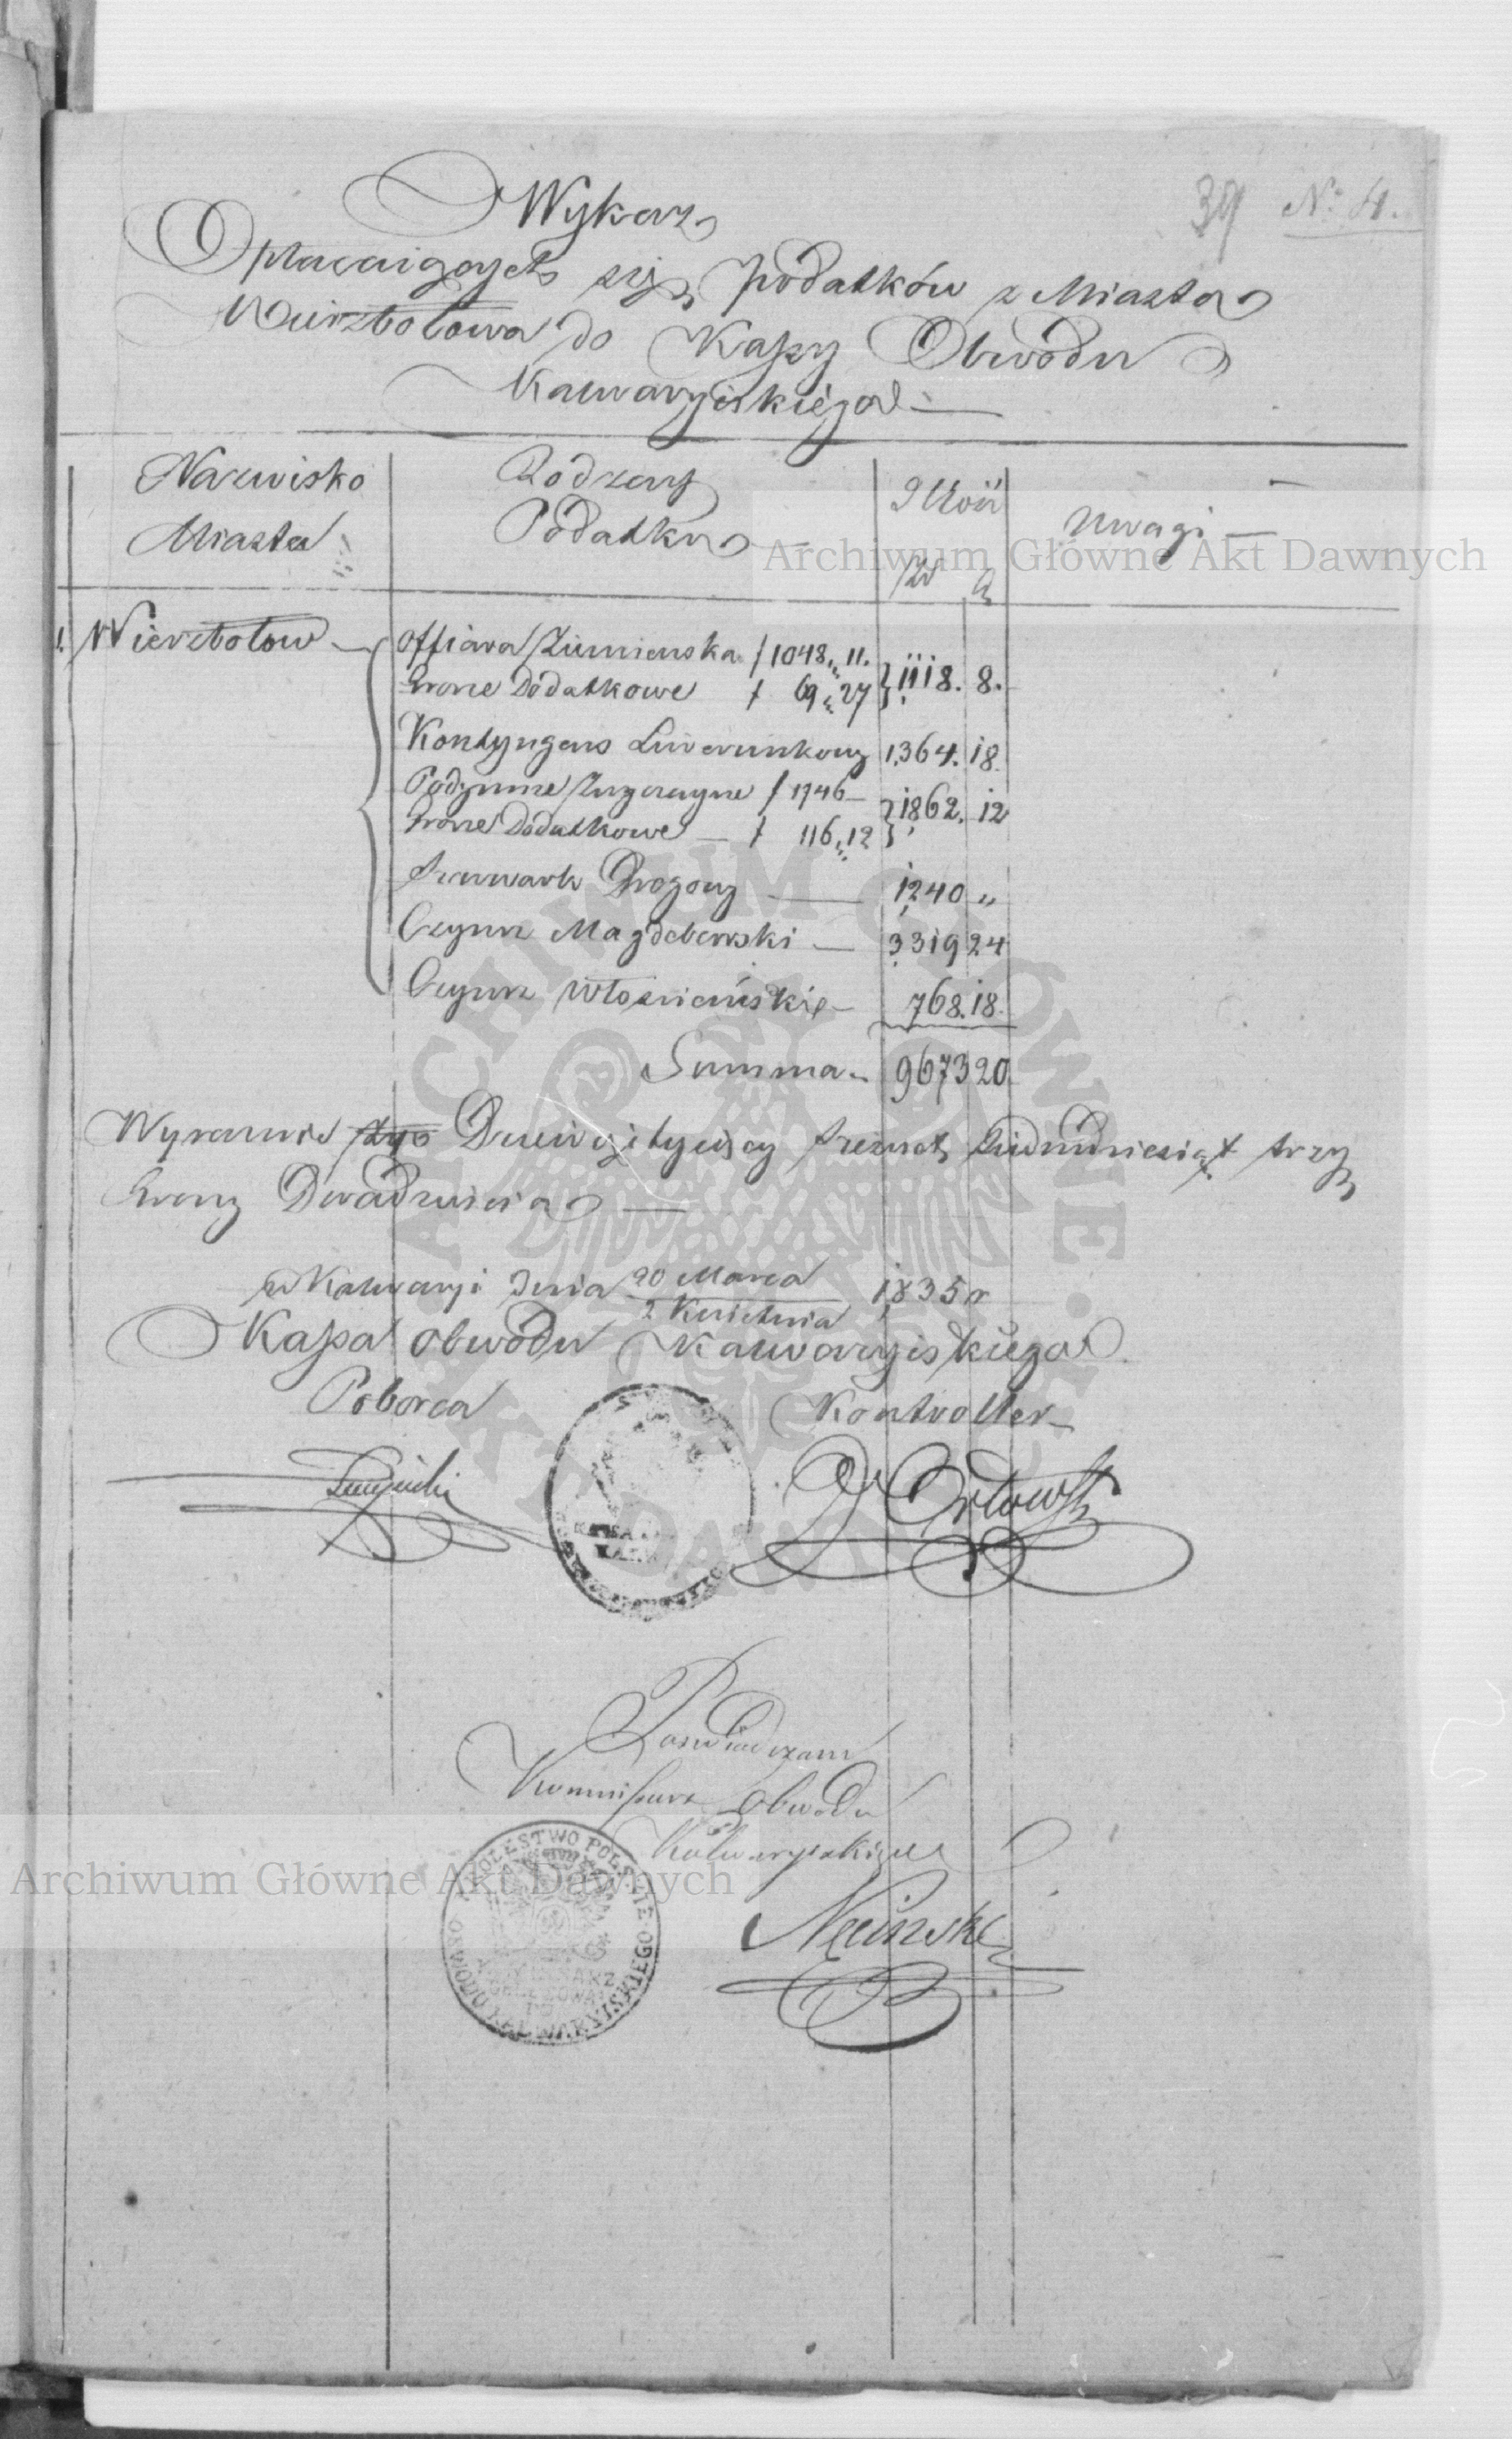 39 No 4.
Wykaz
Opłacaiących się podatków z Miasta
Wierzbołowa do Kassy Obwodu
Kalwaryiskiégo
Nazwisko Miasta
Rodzay Podatku
Ilość
Zł g
Uwagi
1. Wierzbołow
Offiara Ziemianska 1048 „ 11.
Grosze Dodatkowe 69 „ 27
1118. 8.
Kontyngens Liwerunkowy 1,364. 18.
Podymne Zwyczayne 1746
Grosze Dodatkowe 116 „ 12
1862. 12
Szarwark Drogowy 1240 „
Czynsz Magdeburski 3319 24
Czynsz Włosciański 768. 18.
Summa 9673 20
Wyraznie Złp Dziewięć tysięcy szesset siedmdziesiąt trzy
Groszy Dwadziescia
w Kalwaryi dnia 20 Marca / 2 Kwietnia 1835 r
Kassa obwodu Kalwaryiskiego
Poborca
Kontroller
Orłowski
Poswiadczam
Kommissarz Obwodu
Kalwaryiskiego
KRÓLESTWO POLSKIE
OBWODU KALWARYISKIEGO
Archiwum Główne Akt Dawnych
Archiwum Główne Akt Dawnych
ARCHIWUM GŁÓWNE AKT DAWNYCH